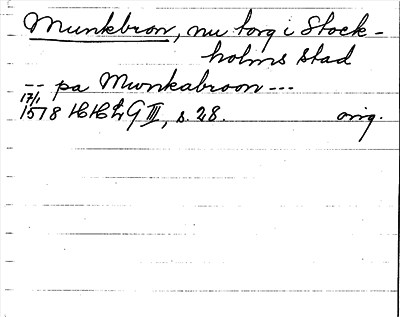 Munkbron, nu torg i Stock-
holms stad
-- pa Munkabroon ---
17/1
1578 HH G III, s. 28. orig.